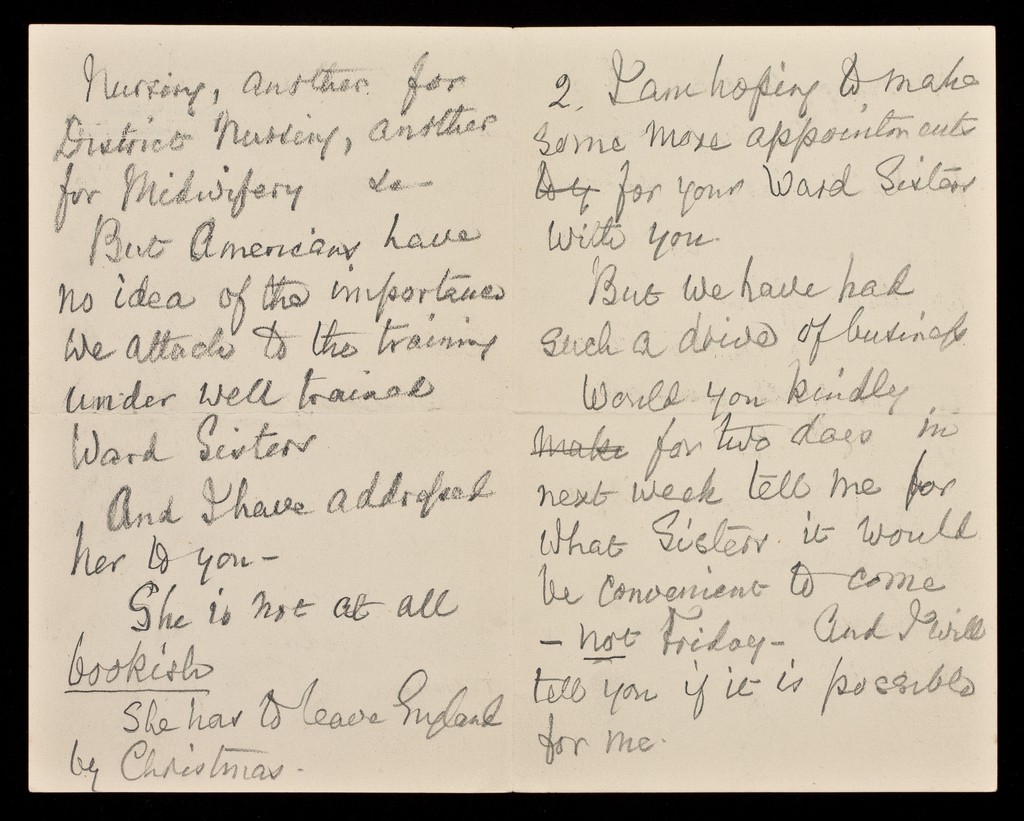 Nursing, another for
District Nursing, another
for Midwifery &c—
But Americans have
no idea of the importance
we attach to the training
under well trained
Ward Sisters
And I have addressed
her to you—
She is not at all
bookish
She has to leave England
by Christmas.
2. I am hoping to make
some more appointments
by for your Ward Sisters
with you.
But we have had
such a drive of business
Would you kindly
make for two days in
next week tell me for
what Sisters it would
be convenient to come
— not Friday — And I will
tell you if it is possible
for me.